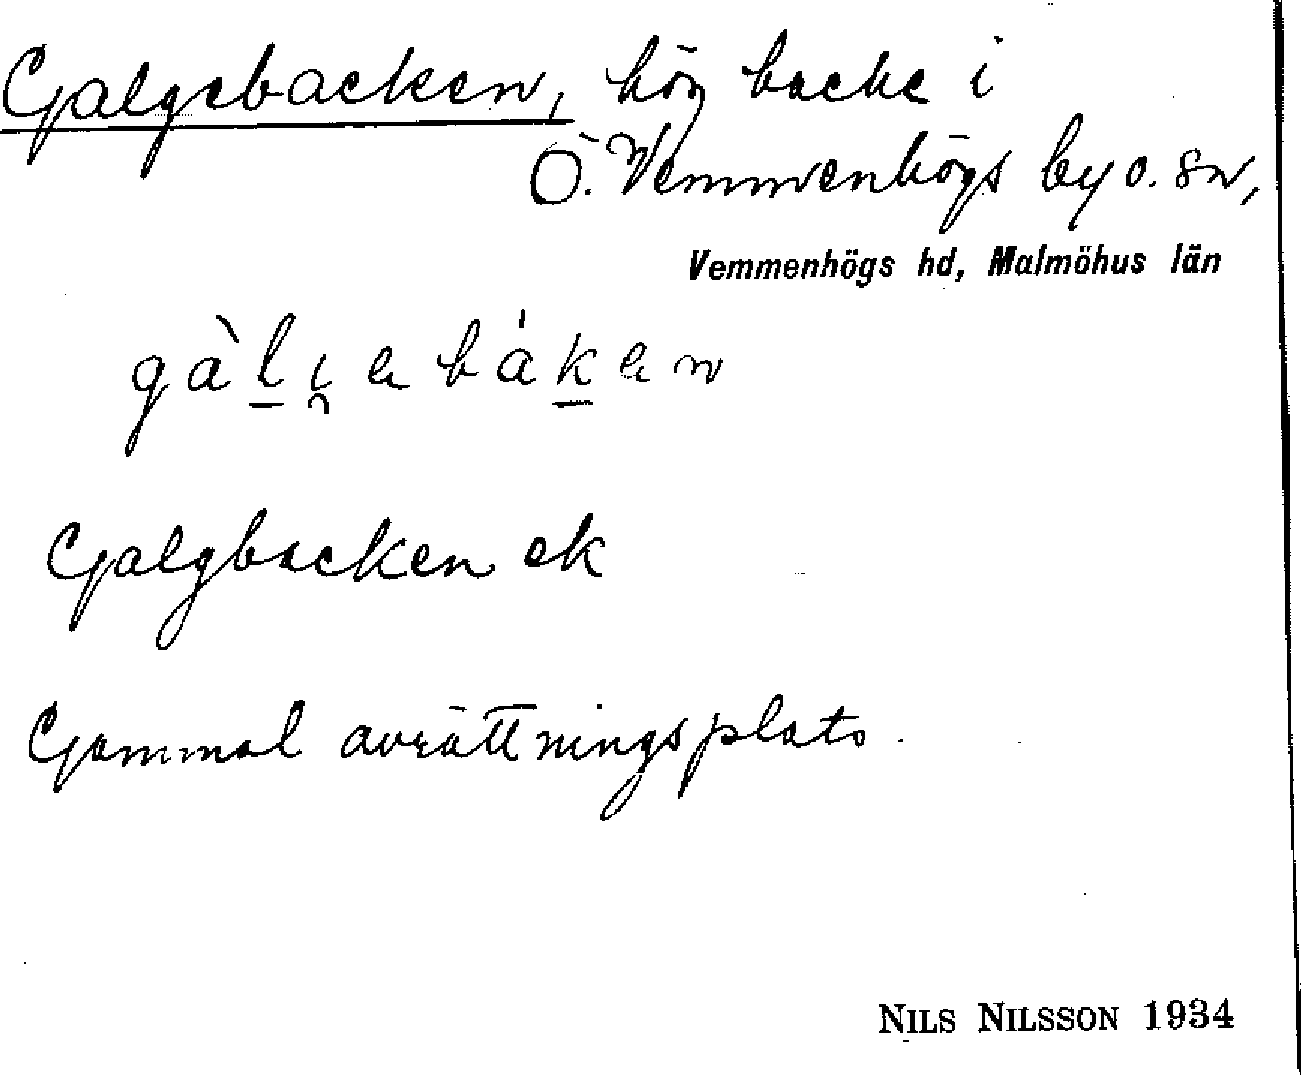 Galgebacken, hög backe i
Ö. Vemmenhögs by o. sn,
Vemmenhögs hd, Malmöhus län
gàl̠i̯ebák̠en
Galgbacken ek
Gammal avrättningsplats.
NILS NILSSON 1934